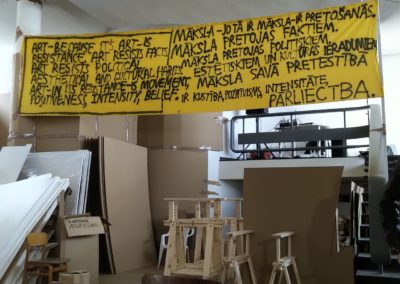 ART-BECAUSE ITS ART-IS
RESISTANCE. ART RESISTS FACTS
ART RESISTS POLITICAL
AESTHETICAL AND CULTURAL HABITS
ART-IN ITS RESISTANCE-IS MOVEMENT,
POSITIVENESS INTENSITY, BELIEF.
MĀKSLA-JO TĀ IR MĀKSLA-IR PRETOŠANĀS.
MĀKSLA PRETOJAS FAKTIEM.
MĀKSLA PRETOJAS POLITISKIEM
ESTĒTISKIEM UN KULTŪRAS IERADUMIEM
MĀKSLA SAVĀ PRETESTĪBĀ
IR KUSTĪBA, POZITIVISMS, INTENSITĀTE,
PĀRLIECĪBA.